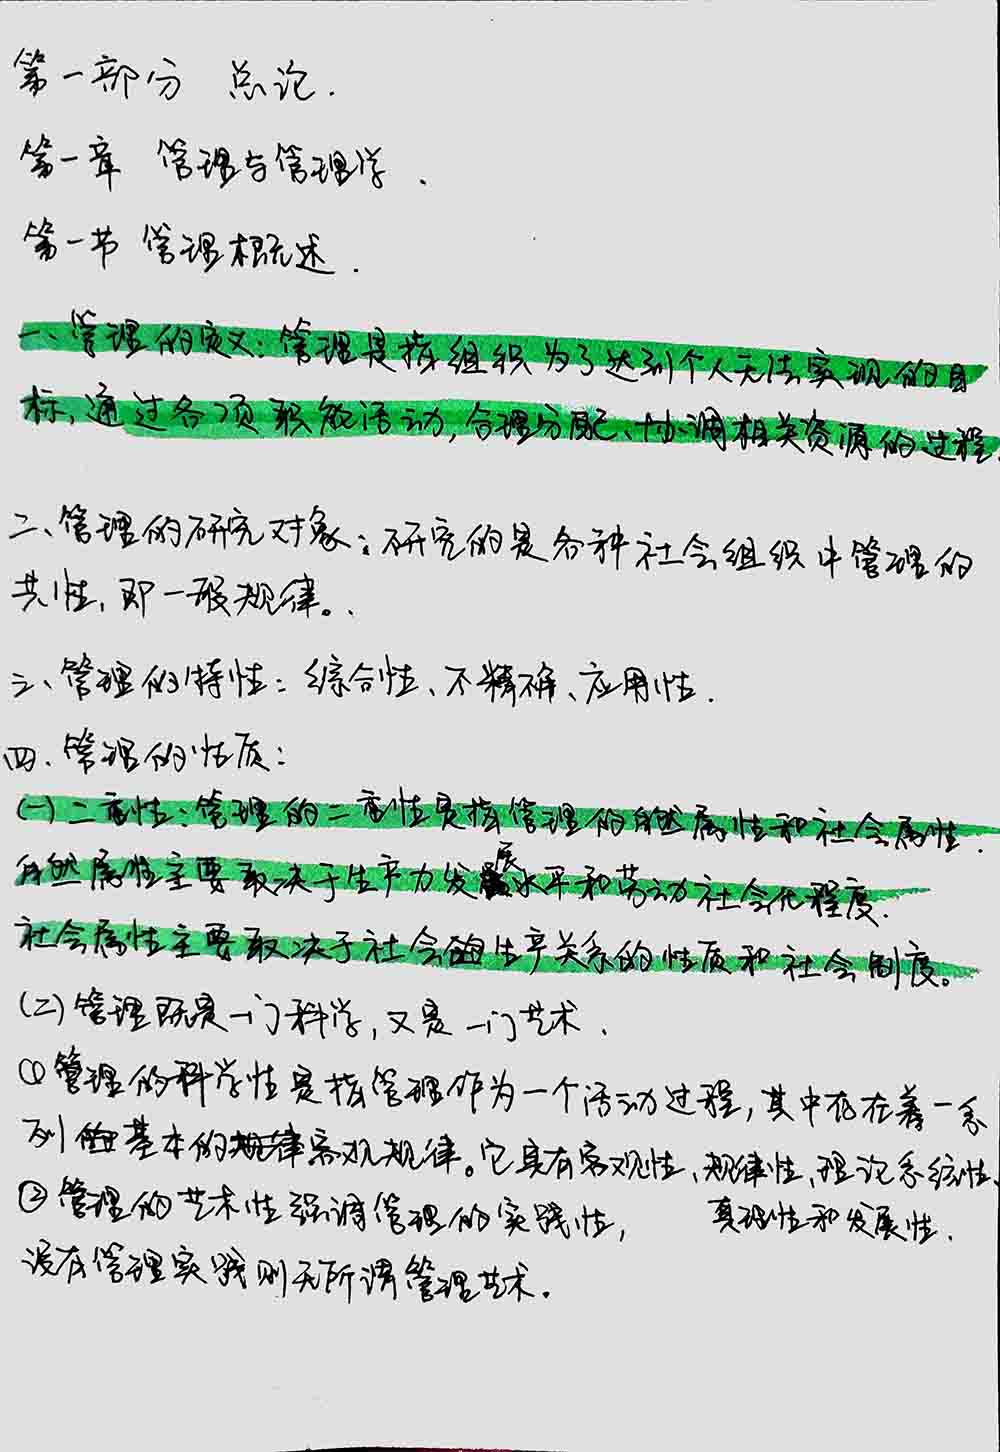 第一部分 总论.
第一章 管理与管理学.
第一节 管理概述.
一、管理的定义:管理是指组织为了达到个人无法实现的目
标,通过各项职能活动,合理分配、协调相关资源的过程.
二、管理的研究对象:研究的是各种社会组织中管理的
共性,即一般规律。
三、管理的特性:综合性、不精确、应用性.
四.管理的性质:
(一)二重性:管理的二重性是指管理的自然属性和社会属性.
自然属性主要取决于生产力发展水平和劳动社会化程度.
社会属性主要取决于社会生产关系的性质和社会制度。
(二)管理既是一门科学,又是一门艺术.
①管理的科学性是指管理作为一个活动过程,其中存在着一系
列基本的客观规律。它具有客观性、规律性、理论系统性、
真理性和发展性.
②管理的艺术性强调管理的实践性,
没有管理实践则无所谓管理艺术。